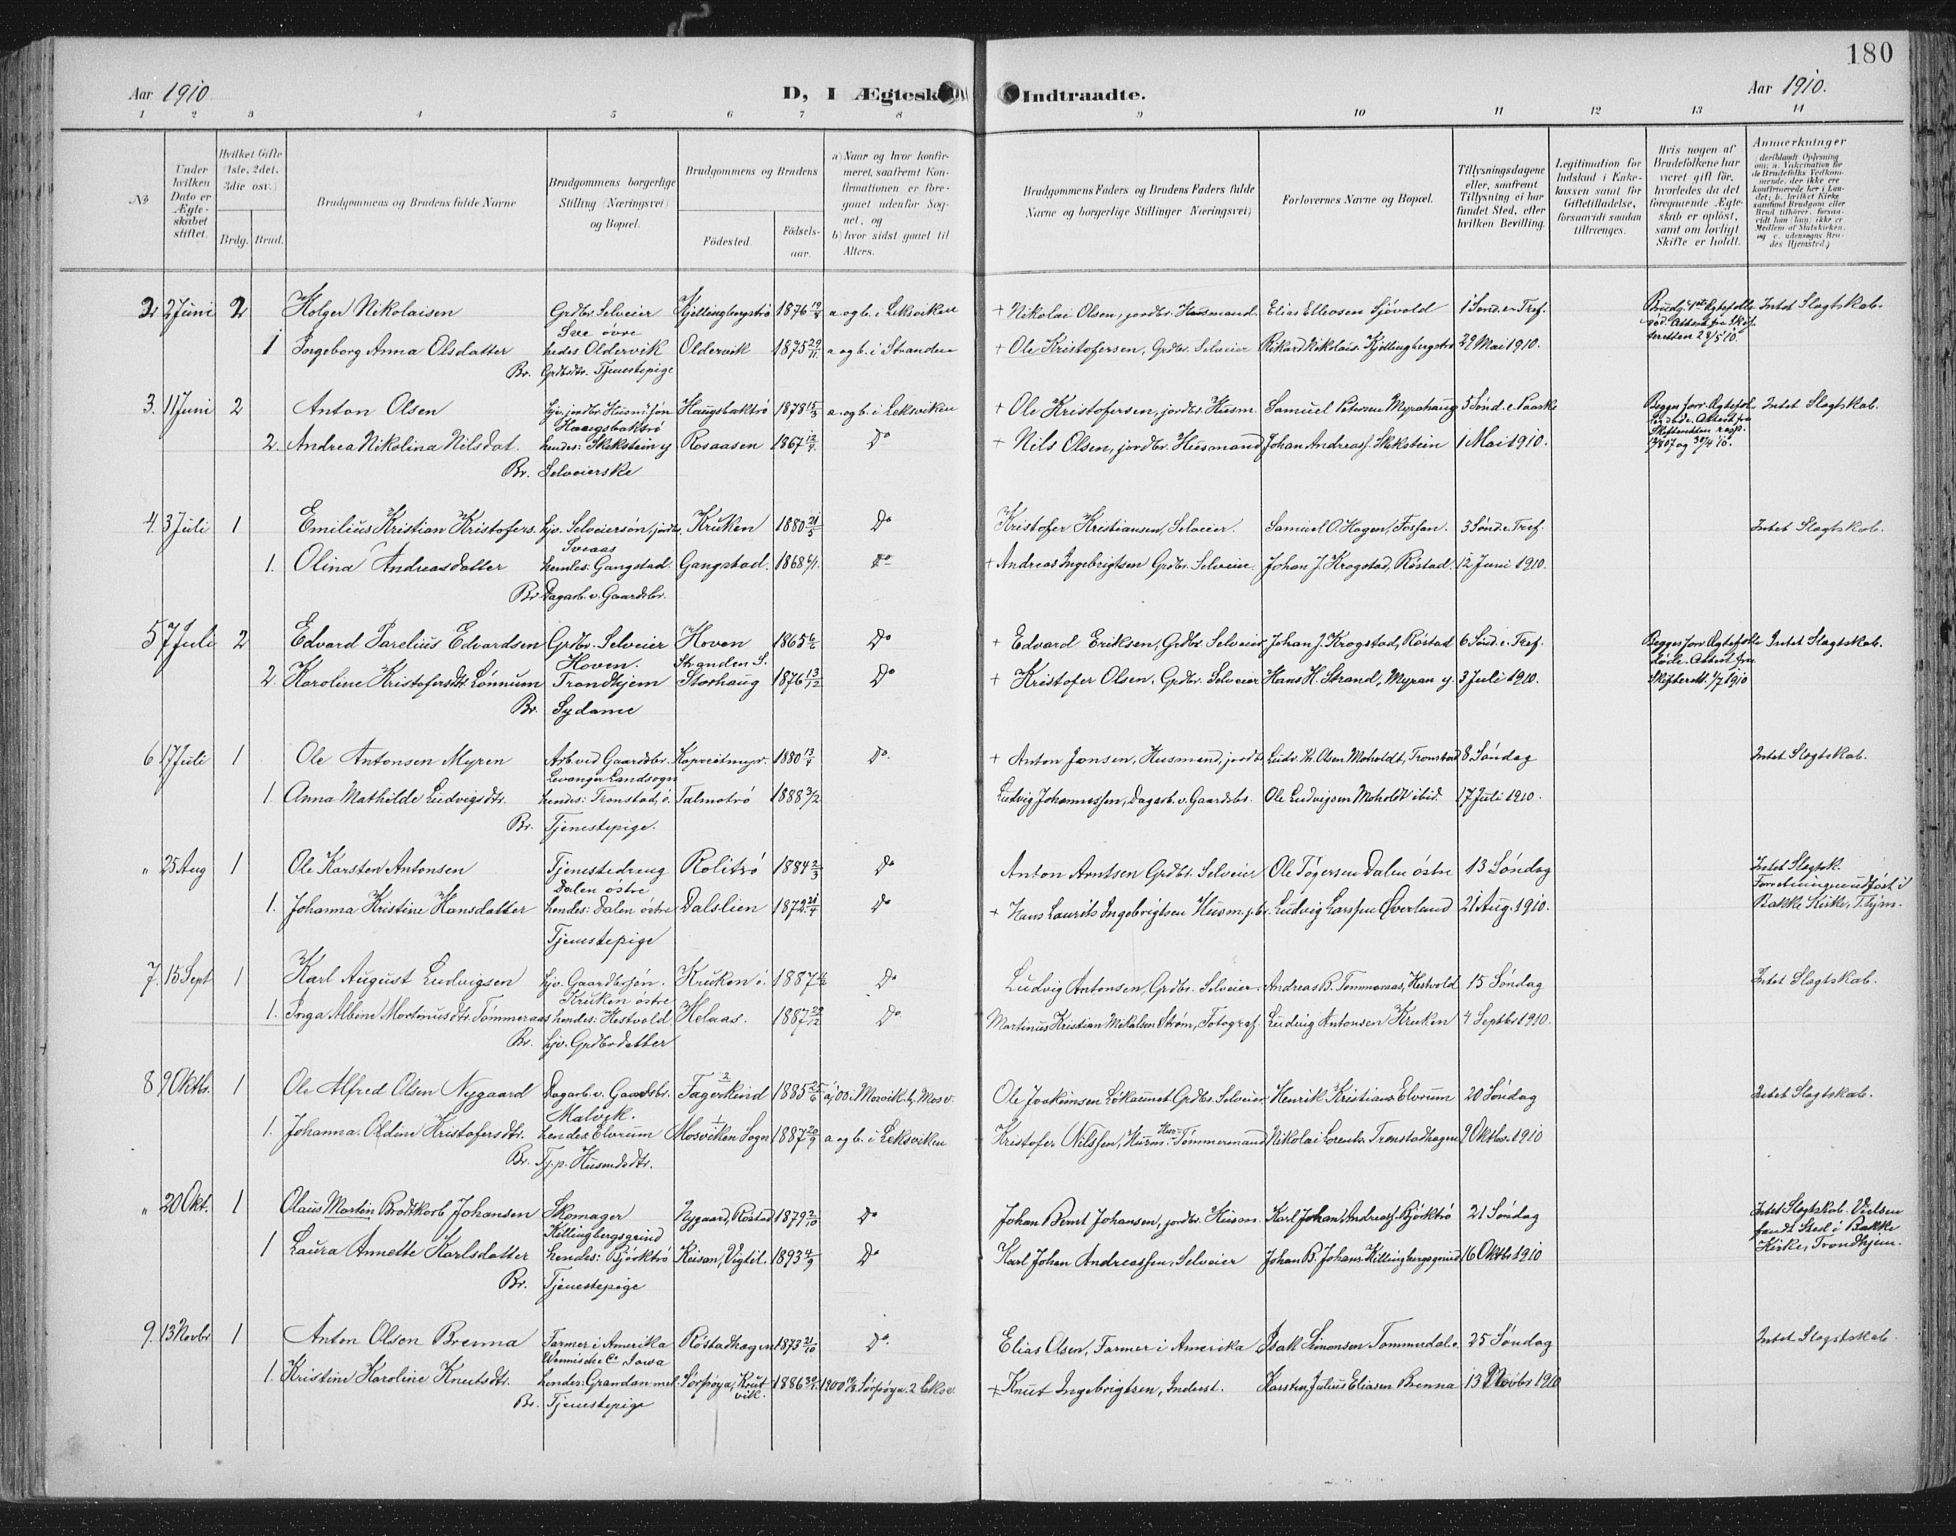 180
Aar 1910.
D, I Ægtesk
Indtraadte.
Aar 1910.
1 2 3 4 5 6 7 8 9 10 11 12 13 14
№
Under hvilken Dato er Ægteskabet stiftet.
Hvilket Gifte (1ste, 2det, 3die osv.)
Brdg. Brud.
Brudgommens og Brudens fulde Navne
Brudgommens borgerlige Stilling (Næringsvei) og Bopæl.
Brudgommens og Brudens
Födested.
Födsels-aar.
a) Naar og hvor konfirmeret, saafremt Konfirmationen er foregaaet udenfor Sognet, og
b) hvor sidst gaaet til Alters.
Brudgommens Faders og Brudens Faders fulde Navne og borgerlige Stillinger Næringsvei)
Forlovernes Navne og Bopæl.
Tillysningsdagene eller, saafremt Tillysning ei har fundet Sted, efter hvilken Bevilling.
Legitimation for Indskud i Enkekassen samt for Giftetilladelse, forsaavidt saadan tiltrænges.
Hvis nogen af Brudefolkene har været gift før, hvorledes da det foregaaende Ægteskab er oplöst, samt om lovligt Skifte er holdt.
Anmerkninger
2 2 Juni 2 Holger Nikolaisen Grdbr. Selveier Kjellingbergstrø 1876 a og b. i Leksviken + Nikolai Olsen, jordbr. Husmand Elias Elleosen Sjøvold 1 Sønd. e. Tref. Intet Slagtskab.
See övre
1 Ingeborg Anna Olsdatter hedes Oldervik Oldervik 1875 29/11 a og b. i Stranden + Ole Kristofersen, Grdbr. Selveier Rikard Nikolais. Kjellingbergstrø 29 Mai 1910.
Br. Grdbdtr. Tjenestepige
3. 11 Juni 2 Anton Olsen Hjv. jordbr. Husm: søn Haugsbaktrø 1878 15/3 a. og b. i Leksviken + Ole Kristofersen, jordbr. Husm. Samuel Petersen Myrahaug 5 Sønd. e. Paaske Intet Slagtskab.
Haugsbaktrø
2. Andrea Nikolina Nilsdat. hendes: Skekstein y Rosaasen 1867 Do + Nils Olsen, jordbr. Husmand Johan Andreass. Skekstein 1 Mai 1910.
Br. Selveierske
4. 3 Juli 1 Emilius Kristian Kristofers. Hjv. Selveiersøn, jordbr. Kruken 1880 21/5 Do Kristofer Kristiansen, Selveier. Samuel O. Hagen, Fossan. 3 Sønd. e. Tref. Intet Slagtskab.
Sveaas
1. Olina Andreasdatter hendes: Gangstad Gangstad. 1868 Do + Andreas Ingebrigtsen Grdbr. Selveier. Johan J. Krogstad, Röstad. 12 Juni 1910.
Br Dagarb. v. Gaardsbr.
5 7 Juli 2 Edvard Parelius Edvardsen Grdbr. Selveier Hoven 1865 6/6 Do + Edvard Eriksen, Grdbr. Selveier Johan J. Krogstad, Röstad 6 Sønd. e. Tref. Intet Slagtskab.
Hoven. Stranden S.
2. Karoline Kristofersdtr. Lønnum Trondhjem Storhaug 1876 13/12 Do + Kristofer Olsen, Grdbr. Selveier Hans H. Strand, Myran y. 3 Juli 1910.
Br. Sydame
6 17 Juli 1 Ole Antonsen Myren Arb. ved Gaardsbr. 1880 13/4 Do. + Anton Jonsen, Husmand, jordbr. Ludv. Kr. Olsen Moholdt, Tronstad 8 Søndag Intet Slagtskab.
Levanger Landsogn
1. Anna Mathilde Ludvigsdtr. hendes: Tronstad, ö. Talmotrö 1888 3/2 Ludvig Johannessen, Dagarb. v. Gaardsbr. Ole Ludvigsen Moholdt ibid. 17 Juli 1910.
Br. Tjenestepige.
" 25 Aug 1 Ole Karsten Antonsen Tjenestedreng Rolitrö 1884 2/3 Do Anton Arntsen Grdbr. Selveier Ole Tögersen Dalen østre 13 Søndag Intet Slagtsk.
Dalen østre Forretningen udført i
1. Johanna Kristine Hansdatter hendes: Dalen østre Dalslien 1872 21/4 Do + Hans Laurits Ingebrigtsen Husm. jbr. Ludvig Larssen Øverland 21 Aug. 1910. Bakke Kirke, T.hjm.
Tjenestepige
7. 15 Sept 1 Karl August Ludvigsen hjv. Gaardbrsøn. Kruken ö. 1887 Do Ludvig Antonsen, Grdbr. Selveier. Andreas B. Tømmeraas, Hestvold 15 Søndag Intet Slagtskab.
Kruken østre
1. Inga Albine Mortinusdtr. Tømmeraas hendes: Hestvold Helaas. 1887 Do Martinus Kristian Mikalsen Strøm, Fotograf. Ludvig Antonsen Kruken 4 Septbr 1910.
Br. hjv. Grdbrdatter
8 9 Oktbr. 1 Ole Alfred Olsen Nygaard Dagarb. v. Gaardsbr. Fagerskind 1885 25/6 Ole Joakimsen Løkaunet Grdbr. Selveier Henrik Kristians. Elvrum 20 Søndag Intet Slagtskab.
Malvik.
1. Johanna Oldine Kristofersdtr. hendes Elvrum Mosviken Sogn 1887 20/9 a og b. i Leksviken Kristofer Nilssen, Husm. Tømmermand Nikolai Lorents. Tronstadhagen 9 Oktbr. 1910
Br. Tj.p. Husmdsdtr.
" 20 Okt. 1 Olaus Morten Brodtkorb Johansen Skomager Nygaard, Röstad 1879 2/10 Do Johan Bernt Johansen, jordbr. Husm. Karl Johan Andreass. Bjørktrö 21 Søndag Intet Slagtskab. Vielsen
Kellingbergsgrind fandt Sted i Bakke
1 Laura Annette Karlsdatter hendes: Bjørktrö Reisan, Vigtil. 1893 Do Karl Johan Andreassen, Selveier Johan B. Johans. Killingbergsgrind 16 Oktbr 1910 Kirke, Trondhjem.
Br. Tjenestepige
9. 13 Novbr 1 Anton Olson Brenna Farmer i Amerika Röstadhagen 1873 21/10 Do. Elias Olsen, Farmer i Amerika Isak Simonsen Tømmerdal. 25 Søndag Intet Slagtskab.
Iowa
1. Kristine Karoline Knutsdtr. hendes: Grandan mel 1886 + Knut Ingebrigtsen, Inderst. Karsten Julius Eliasen Brenna 13 Novbr 1910
Br. Tjenestepige